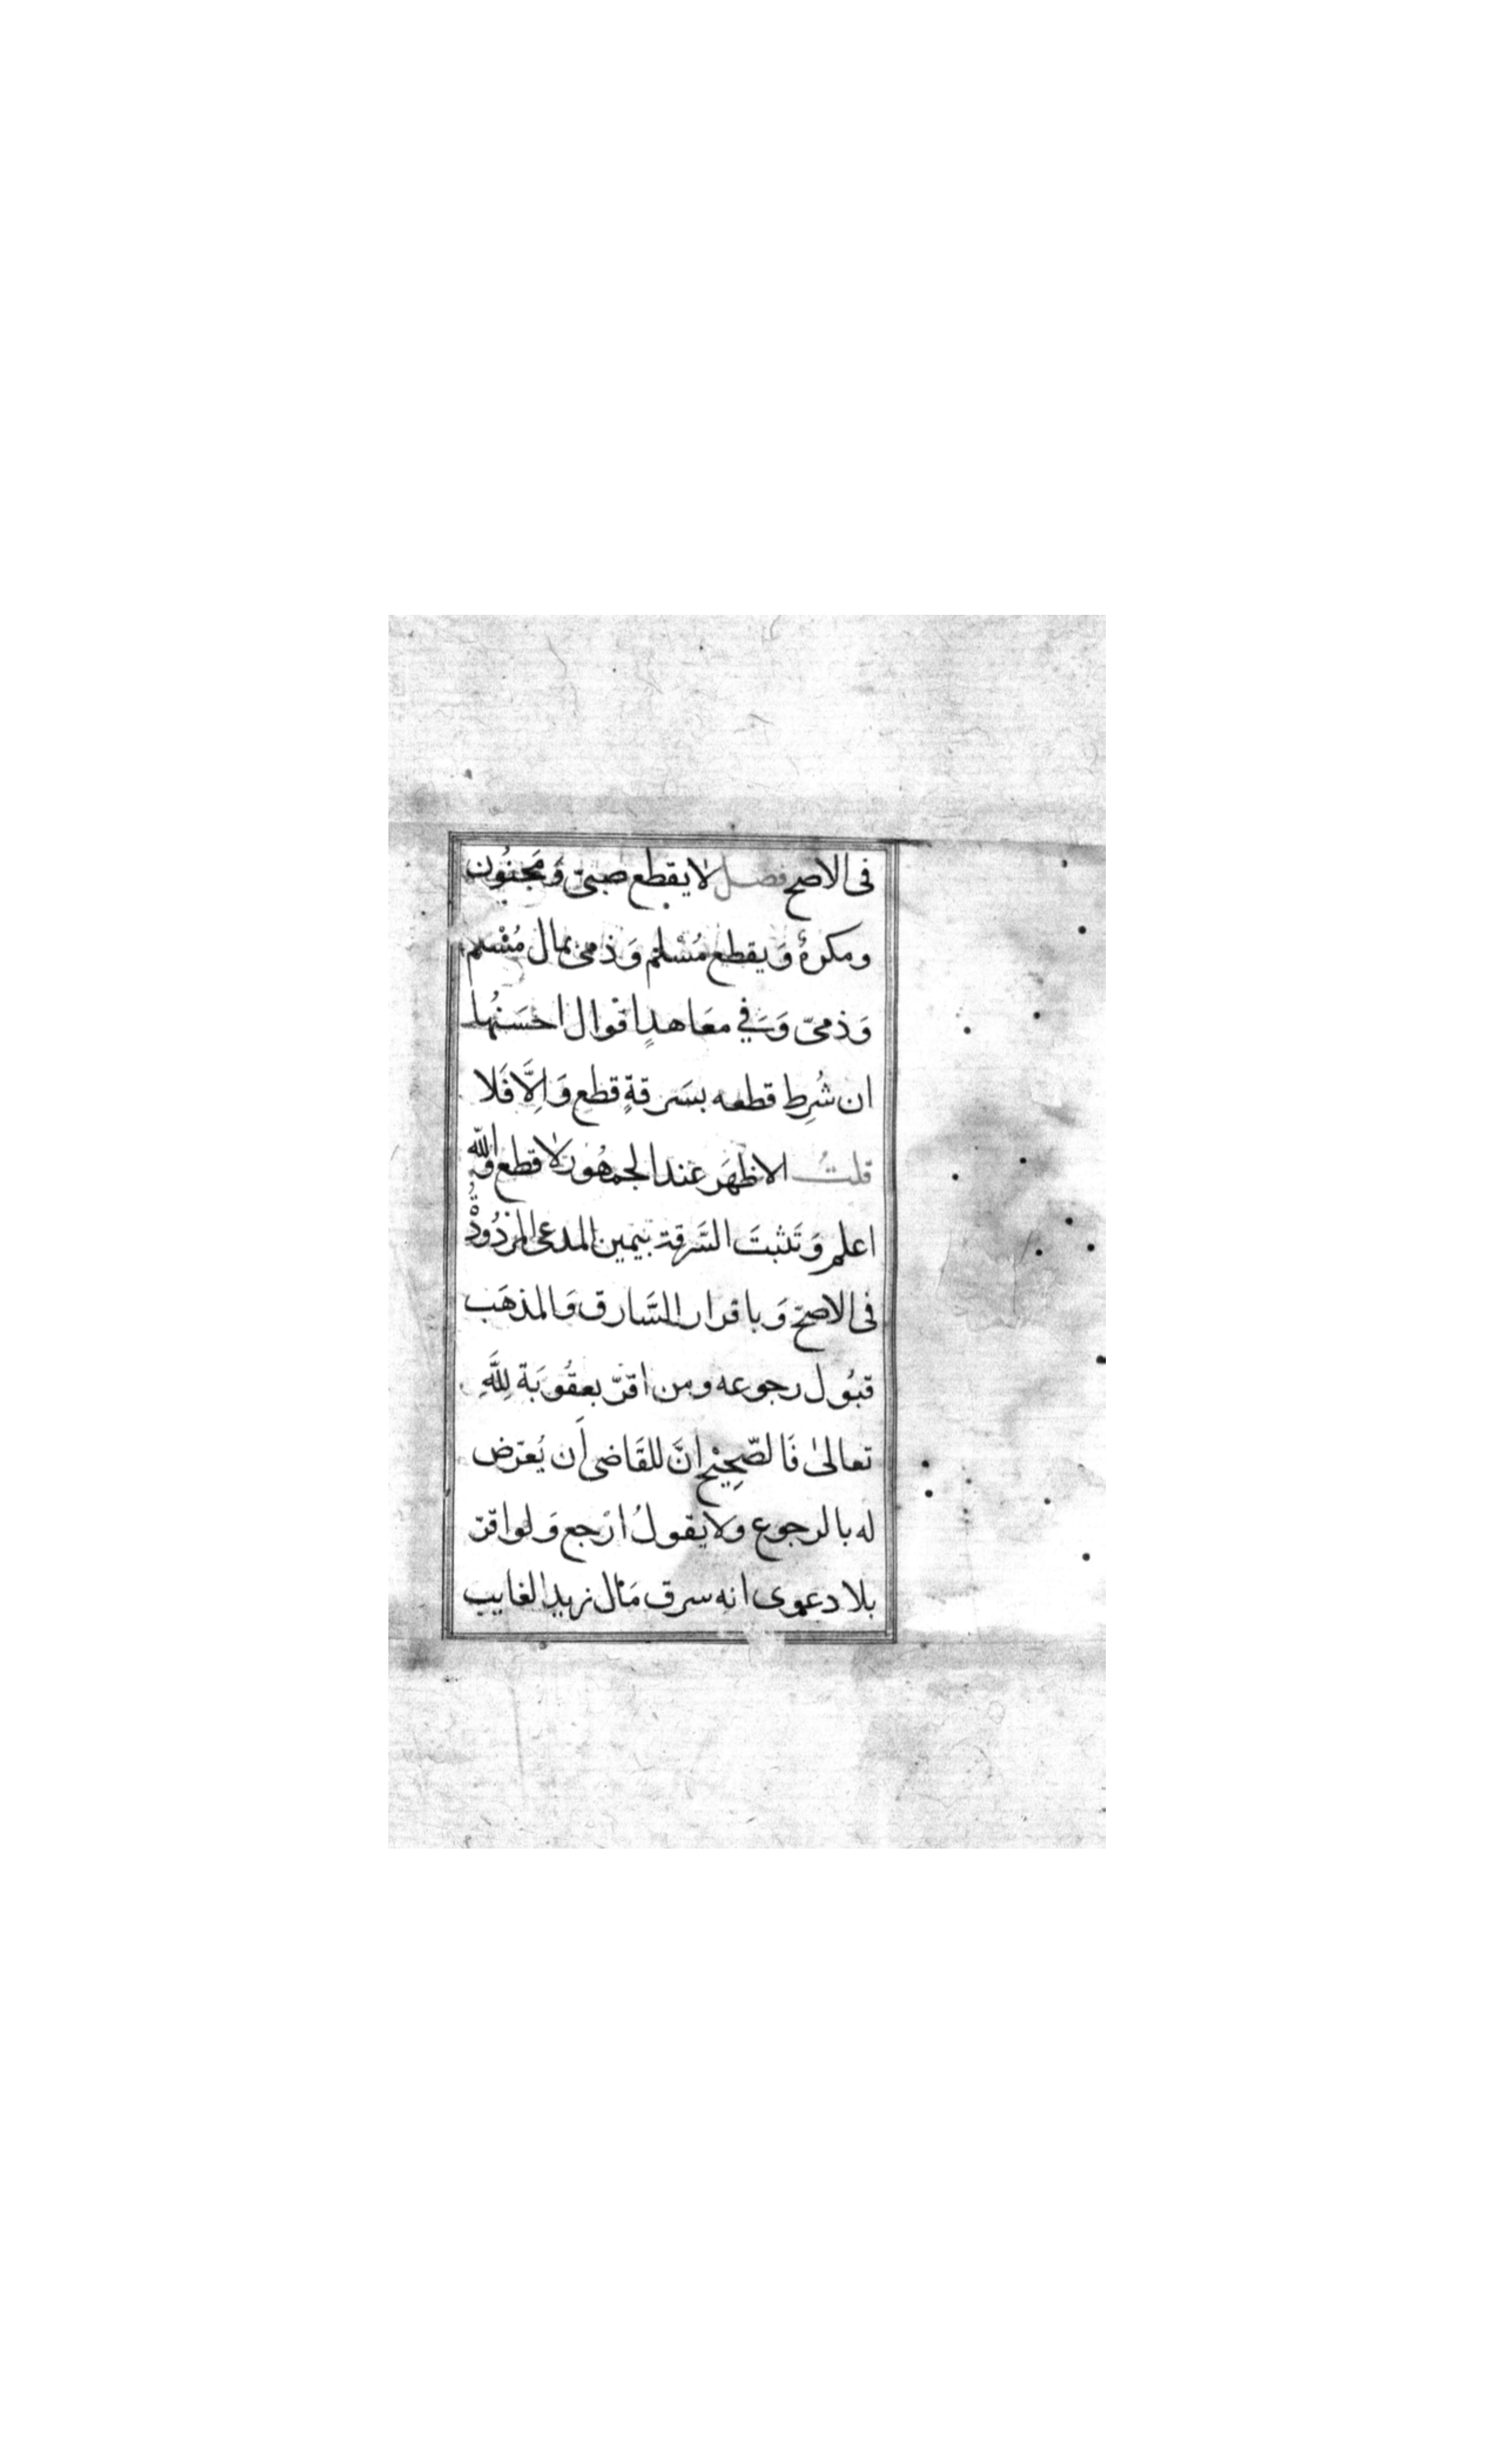 فى الاصح فصل لا يقطع صبىّ وَمَجنُون
ومكرهٌ وَيقطع مُسْلم وَذمى بمال مُسْلم
وَذمىّ وَفي معَاهدٍ اقوال احسَنُها
ان شُرِط قطعه بسَرقةٍ قطع وَاِلَّا فَلا
قلتُ الاظهَر عند الجمهُور لا قطع والله
اعلم وَتَثبتَ السَّرقة بيَمين المدعى المرْدُودْةُ
فى الاصحّ وَباقرار السَّارق وَالمذهَب
قبُول رجوعه ومن اقرّ بعقُوبَة لِلَّهِ
تعالىٰ فَالصّحِيْح انَّ للقَاضى أَن يُعرّض
له بالرجوع ولا يَقولُ ارْجع وَلو اقرّ
بلا دعوى انه سرق مَال زيد الغايب